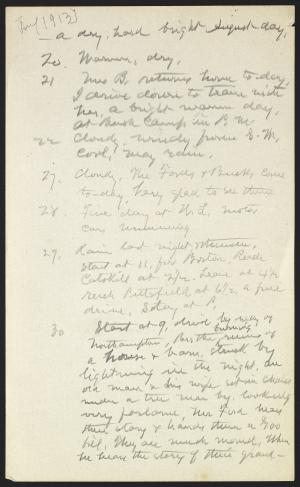 [Aug 1913]
a dry, hard bright August day,
20. Warmer, dry.
21 Mrs B. returns home to-day,
I drive down to train with
her, a bright warm day,
at Bush Camp, in P.M.
22 Cloudy, windy from S.W.
Cool, may rain.
27. Cloudy, The Fords & Bushy come
to-day, very glad to see them
28. Fine day at W.L. motor
cars running
29. Rain last night
start at 11, for Boston, Reach
Catskill at 2 1/2. Leave at 4 1/2
reach Pittsfield at 6 1/2 a fine
drive,
30 Start at 9, drive by way of
Northampton, Pass the burning ruins of
a house & barn, struck by
lightning in the night, an
old man & his wife sat in chairs
under a tree near by, looking
very forlorn, Mr Ford hears
their story & hands them a $100
bill, They are much moved, When
he hears the story of their grand-